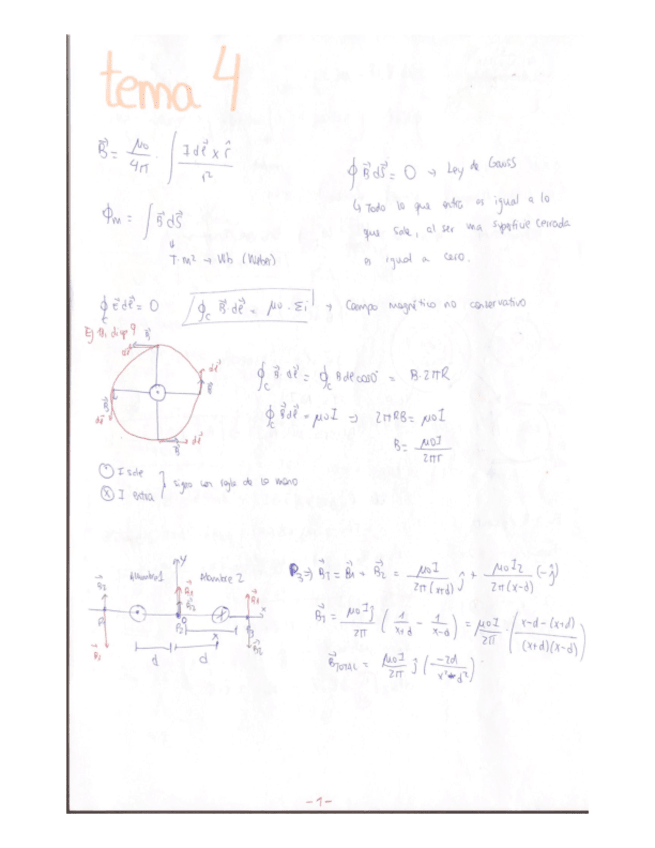 tema 4
B⃗ = μ0/4π · ∫ I dℓ⃗ x r̂ / r²
∮ B⃗ dS⃗ = 0 → Ley de Gauss
↳ Todo lo que entra es igual a lo
que sale, al ser una superficie cerrada
es igual a cero.
Φm = ∫ B⃗ dS⃗
↓
T·m² → Wb (Weber)
∮c E⃗ dℓ⃗ = 0 ∮c B⃗ dℓ⃗ = μ0 · Σi → Campo magnético no conservativo
dℓ⃗ B⃗
B⃗ dℓ⃗
B⃗ dℓ⃗
∮c B⃗ dℓ⃗ = ∮c B dℓ cos0° = B·2πR
∮c B⃗ dℓ⃗ = μ0I ⇒ 2πRB = μ0I
B = μ0I / 2πr
⊙ I sale
⊗ I entra
la mano
Alambre 1 y Alambre 2
x
d d
P3 ⇒ B⃗T = B⃗1 + B⃗2 = μ0I / 2π(x+d) ĵ + μ0I2 / 2π(x-d) (-ĵ)
B⃗T = μ0Iĵ / 2π ( 1/x+d - 1/x-d ) = μ0I / 2π · ( x-d-(x+d) / (x+d)(x-d) )
B⃗TOTAL = μ0I / 2π ĵ ( -2d / x²-d² )
-1-